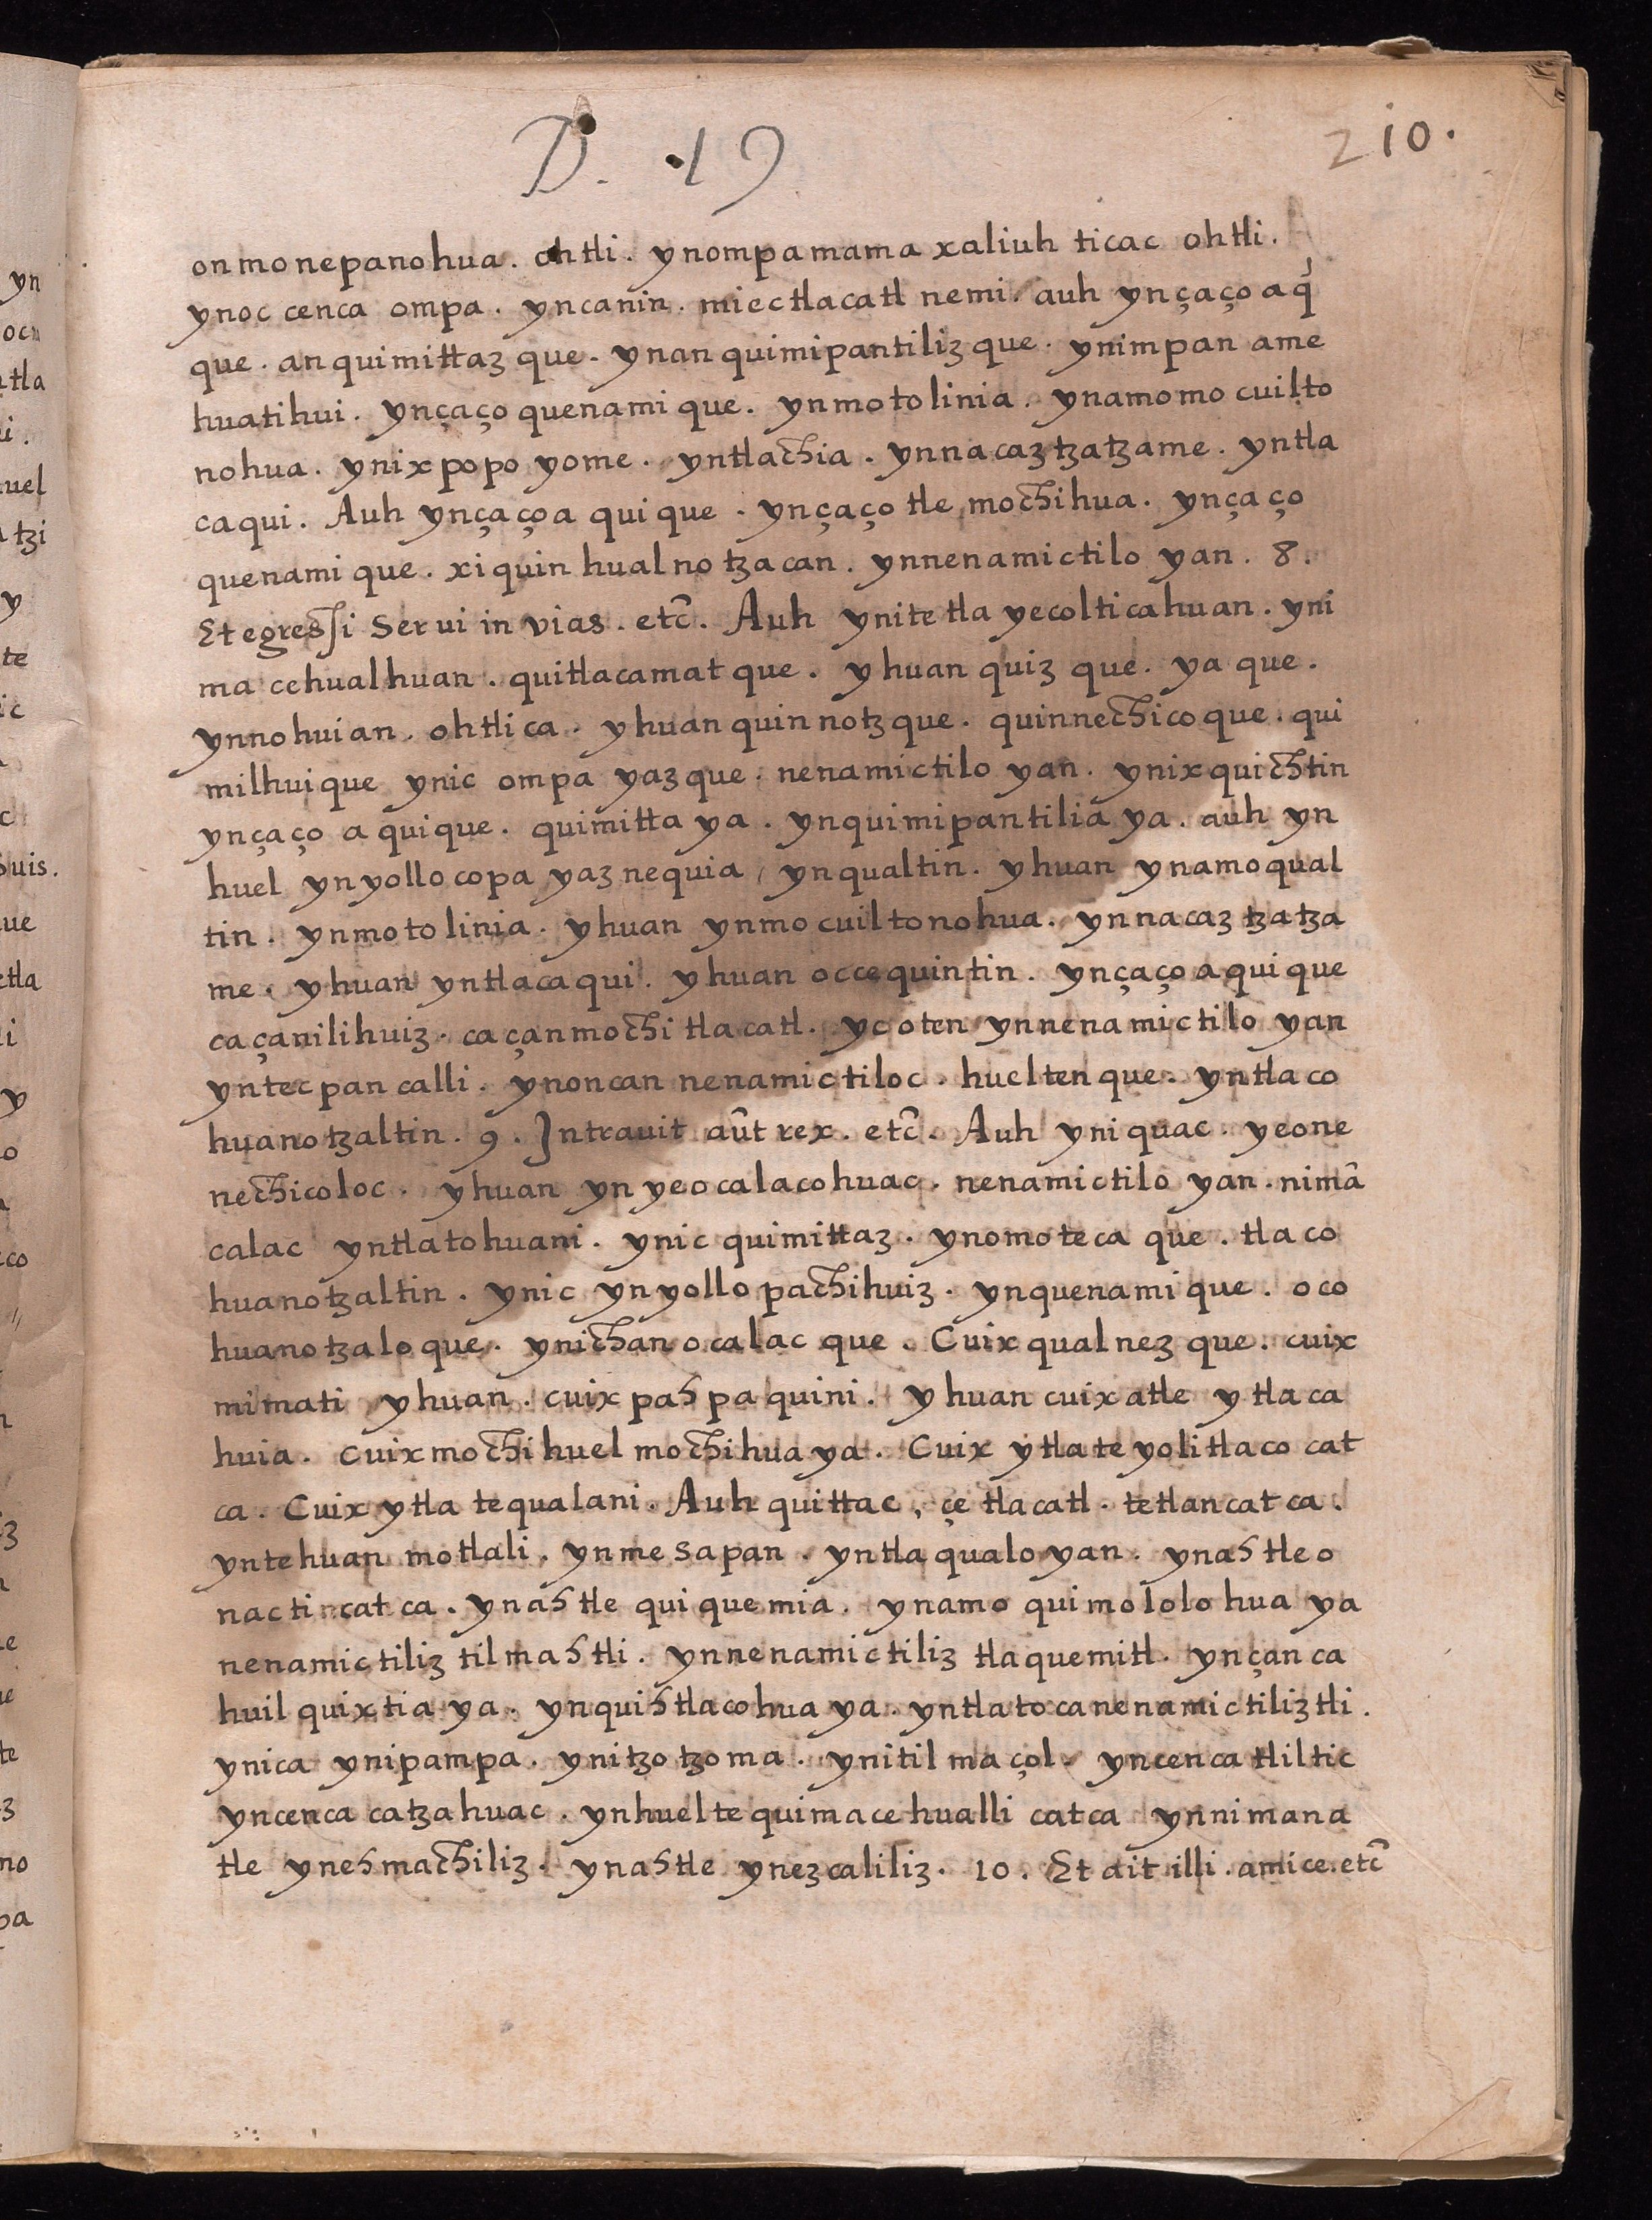 D. 19
210.
onmonepanohua. ohtli. ynompamama xaliuh ticac ohtli.
ynoc cenca ompa. yncanin. miectlacatl nemi. auh ynçaço aq̓
que. anquimittazque. ynanquimipantilizque. ynimpan ame
huatihui. ynçaço quenamique. ynmotolinia. ynamomocuilto
nohua. ynixpopoyome. yntlachia. ynnacaztzatzame. yntla
caqui. Auh ynçaçoa quique. ynçaço tle mochihua. ynçaço
quenamique. xiquinhualnotzacan. ynnenamictiloyan. 8.
Et egressi Serui in vias. etc̃. Auh ynitetlayecolticahuan. yni
macehualhuan. quitlacamatque. yhuan quizque. yaque.
ynnohuian. ohtlica. yhuan quinnotzque. quinnechicoque. qui
milhuique ynic ompa yazque. nenamictiloyan. ynixquichtin
ynçaço aquique. quimittaya. ynquimipantiliaya. auh yn
huel ynyollocopa yaznequia, ynqualtin. yhuan ynamoqual
tin. ynmotolinia. yhuan ynmocuiltonohua. ynnacaztzatza
me. yhuan yntlacaqui. yhuan occequintin. ynçaço aquique
caçanilihuiz. caçanmochi tlacatl. yc oten ynnenamictiloyan
yntecpancalli. ynoncan nenamictiloc. hueltenque. yntlaco
huanotzaltin. 9. Intrauit aũt rex. etc̃. Auh yniquac. yeone
nechicoloc. yhuan ynyeocalacohuac. nenamictiloyan. nimã
calac yntlatohuani. ynic quimittaz. ynomotecaque. tlaco
huanotzaltin. ynic ynyollo pachihuiz. ynquenamique. oco
huanotzaloque. ynichan ocalacque. Cuix qualnezque. cuix
mimati yhuan. cuix pahpaquini. yhuan cuix atle ytlaca
huia. Cuix mochi huel mochihuaya. Cuix ytla teyolitlaco cat
ca. Cuix ytla tequalani. Auh quittac, çe tlacatl. tetlancatca.
yntehuan motlali. ynmesapan. yntlaqualoyan. ynahtle o
nactincatca. ynahtle quiquemia. ynamo quimololohuaya
nenamictiliz tilmahtli. ynnenamictiliz tlaquemitl. ynçanca
huilquixtiaya. ynquihtlacohuaya. yntlatocanenamictiliztli.
ynica ynipampa. ynitzotzoma. ynitilmaçol. yncenca tliltic
yncenca catzahuac. ynhueltequimacehualli catca ynnimana
tle ynehmachiliz. ynahtle ynezcaliliz. 10. Et ait illi. amice. etc̃